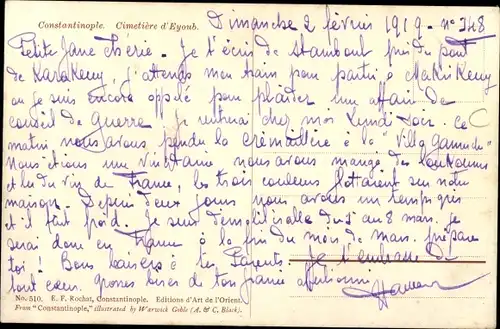 Constantinople. Cimetière d'Eyoub.
Dimanche 2 février 1919 - n° 348
Petite Jane chérie. Je t'écris de Stamboul près du pont
de Karakeuy, j'attends mon train pour partir à Makri Keuy
où je suis encore appelé pour plaider une affaire de
conseil de guerre. Je rentrerai chez moi Lundi soir. Ce
matin, nous avons pendu la crémaillère à la "Villa
Nous étions une vingtaine nous avons mangé des
et bu du vin de France, les trois couleurs flottaient sur notre
maison. Depuis deux jours nous avons un temps gris
et il fait froid. Je suis démobilisable du 5 au 8 mars. Je
serai donc en France à la fin du mois de mars. prépare
toi! Bons baisers à tes Parents. Je t'embrasse de
tout cœur. grosses bises de ton fiancé affectionné
No. 510. E. F. Rochat, Constantinople. Editions d'Art de l'Orient.
From "Constantinople," illustrated by Warwick Goble (A. & C. Black).